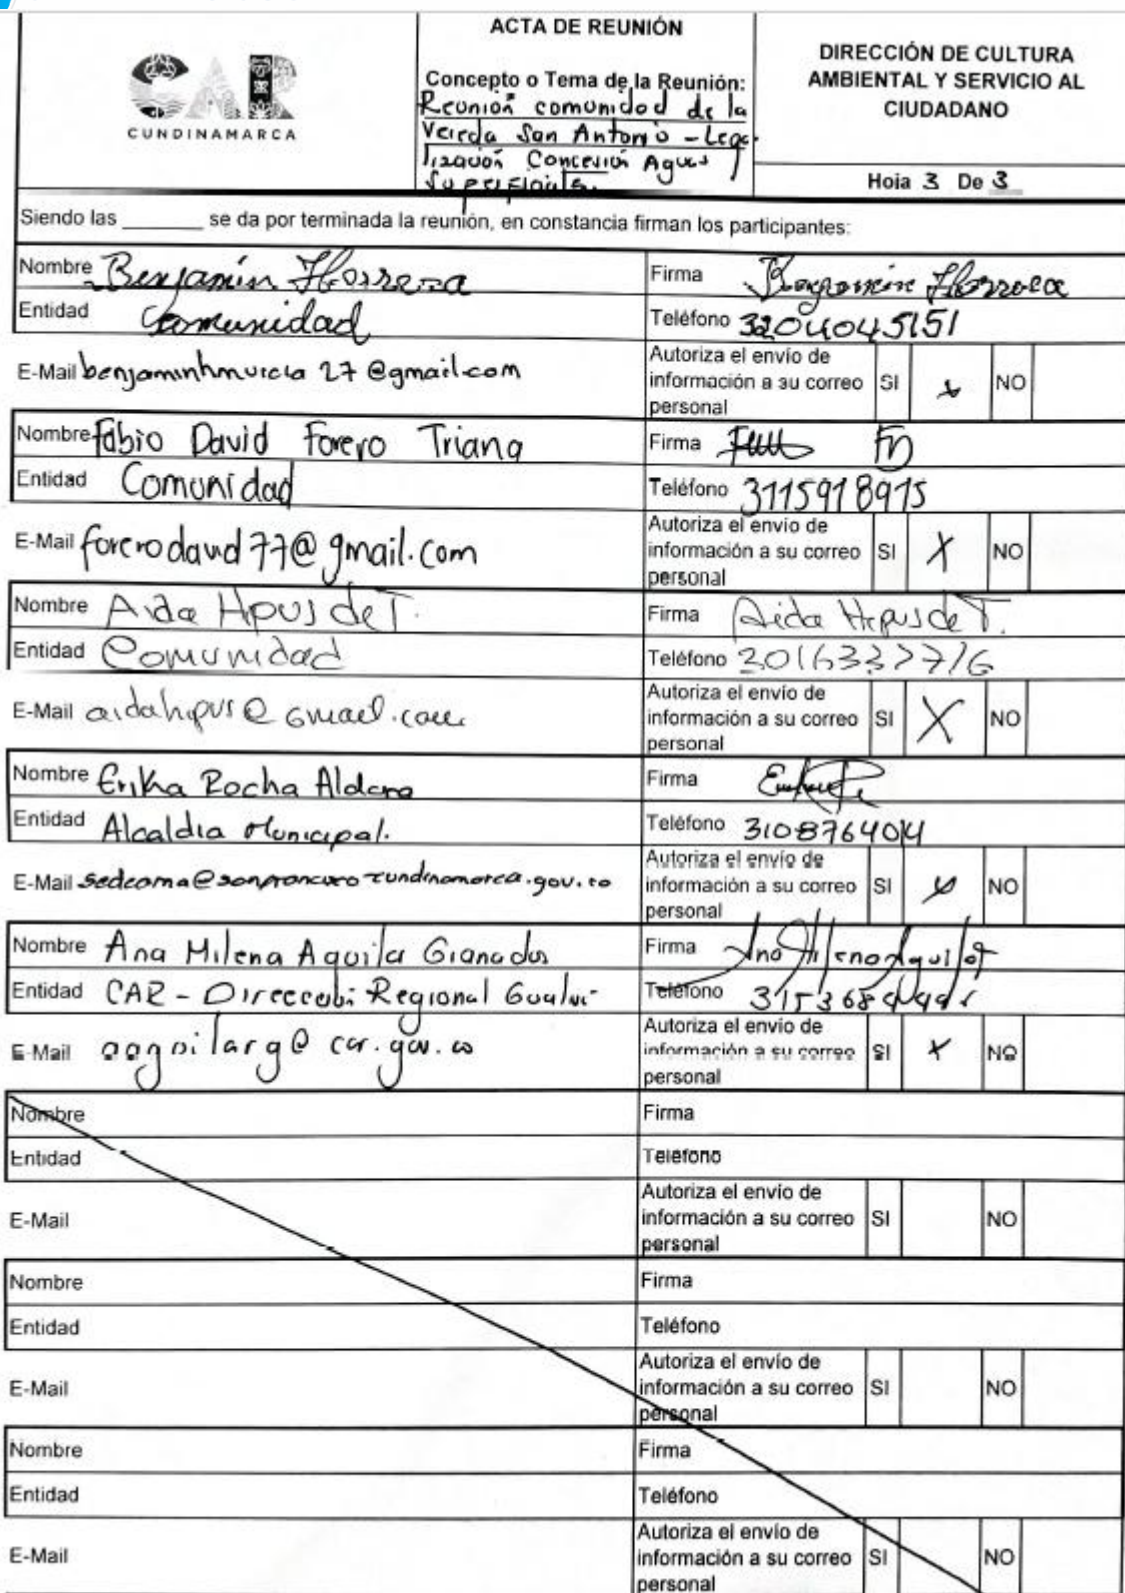 ACTA DE REUNIÓN
CAR
CUNDINAMARCA
Concepto o Tema de la Reunión:
Reunión comunidad de la
Vereda San Antonio - Lega
lización Concesión Aguas
Superficiales.
DIRECCIÓN DE CULTURA
AMBIENTAL Y SERVICIO AL
CIUDADANO
Hoja 3 De 3
Siendo las ______ se da por terminada la reunión, en constancia firman los participantes:
Nombre Benjamín Herrera Firma Benjamín Herrera
Entidad Comunidad Teléfono 3204045151
E-Mail benjaminhmurcia27@gmail.com
Autoriza el envío de
información a su correo SI x NO
personal
Nombre Fabio David Forero Triana Firma
Entidad Comunidad Teléfono 3115918915
E-Mail forerodavid77@gmail.com
Autoriza el envío de
información a su correo SI X NO
personal
Nombre Aida Hpus de T. Firma Aida Hpus de T.
Entidad Comunidad Teléfono
E-Mail aidahpus@gmail.com
Autoriza el envío de
información a su correo SI X NO
personal
Nombre Erika Rocha Aldana Firma
Entidad Alcaldia Municipal. Teléfono 3108764014
E-Mail
Autoriza el envío de
información a su correo SI x NO
personal
Nombre Ana Milena Aguilar Granados Firma Ana Milena Aguilar
Entidad CAR - Dirección Regional Gualivá Teléfono
E-Mail aaguilarg@car.gov.co
Autoriza el envío de
información a su correo SI x NO
personal
Nombre Firma
Entidad Teléfono
E-Mail
Autoriza el envío de
información a su correo SI NO
personal
Nombre Firma
Entidad Teléfono
E-Mail
Autoriza el envío de
información a su correo SI NO
personal
Nombre Firma
Entidad Teléfono
E-Mail
Autoriza el envío de
información a su correo SI NO
personal